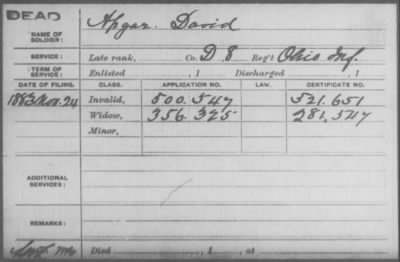 DEAD
NAME OF SOLDIER: Apgar, David
SERVICE: Late rank, Co. D 8 Reg't Ohio Inf.
TERM OF SERVICE: Enlisted , 1 Discharged , 1
DATE OF FILING. CLASS. APPLICATION NO. LAW. CERTIFICATE NO.
1883 Nov. 24 Invalid, 500.547 521.651
Widow, 356.325 281,547
Minor,
ADDITIONAL SERVICES:
REMARKS:
Died , 1 , at